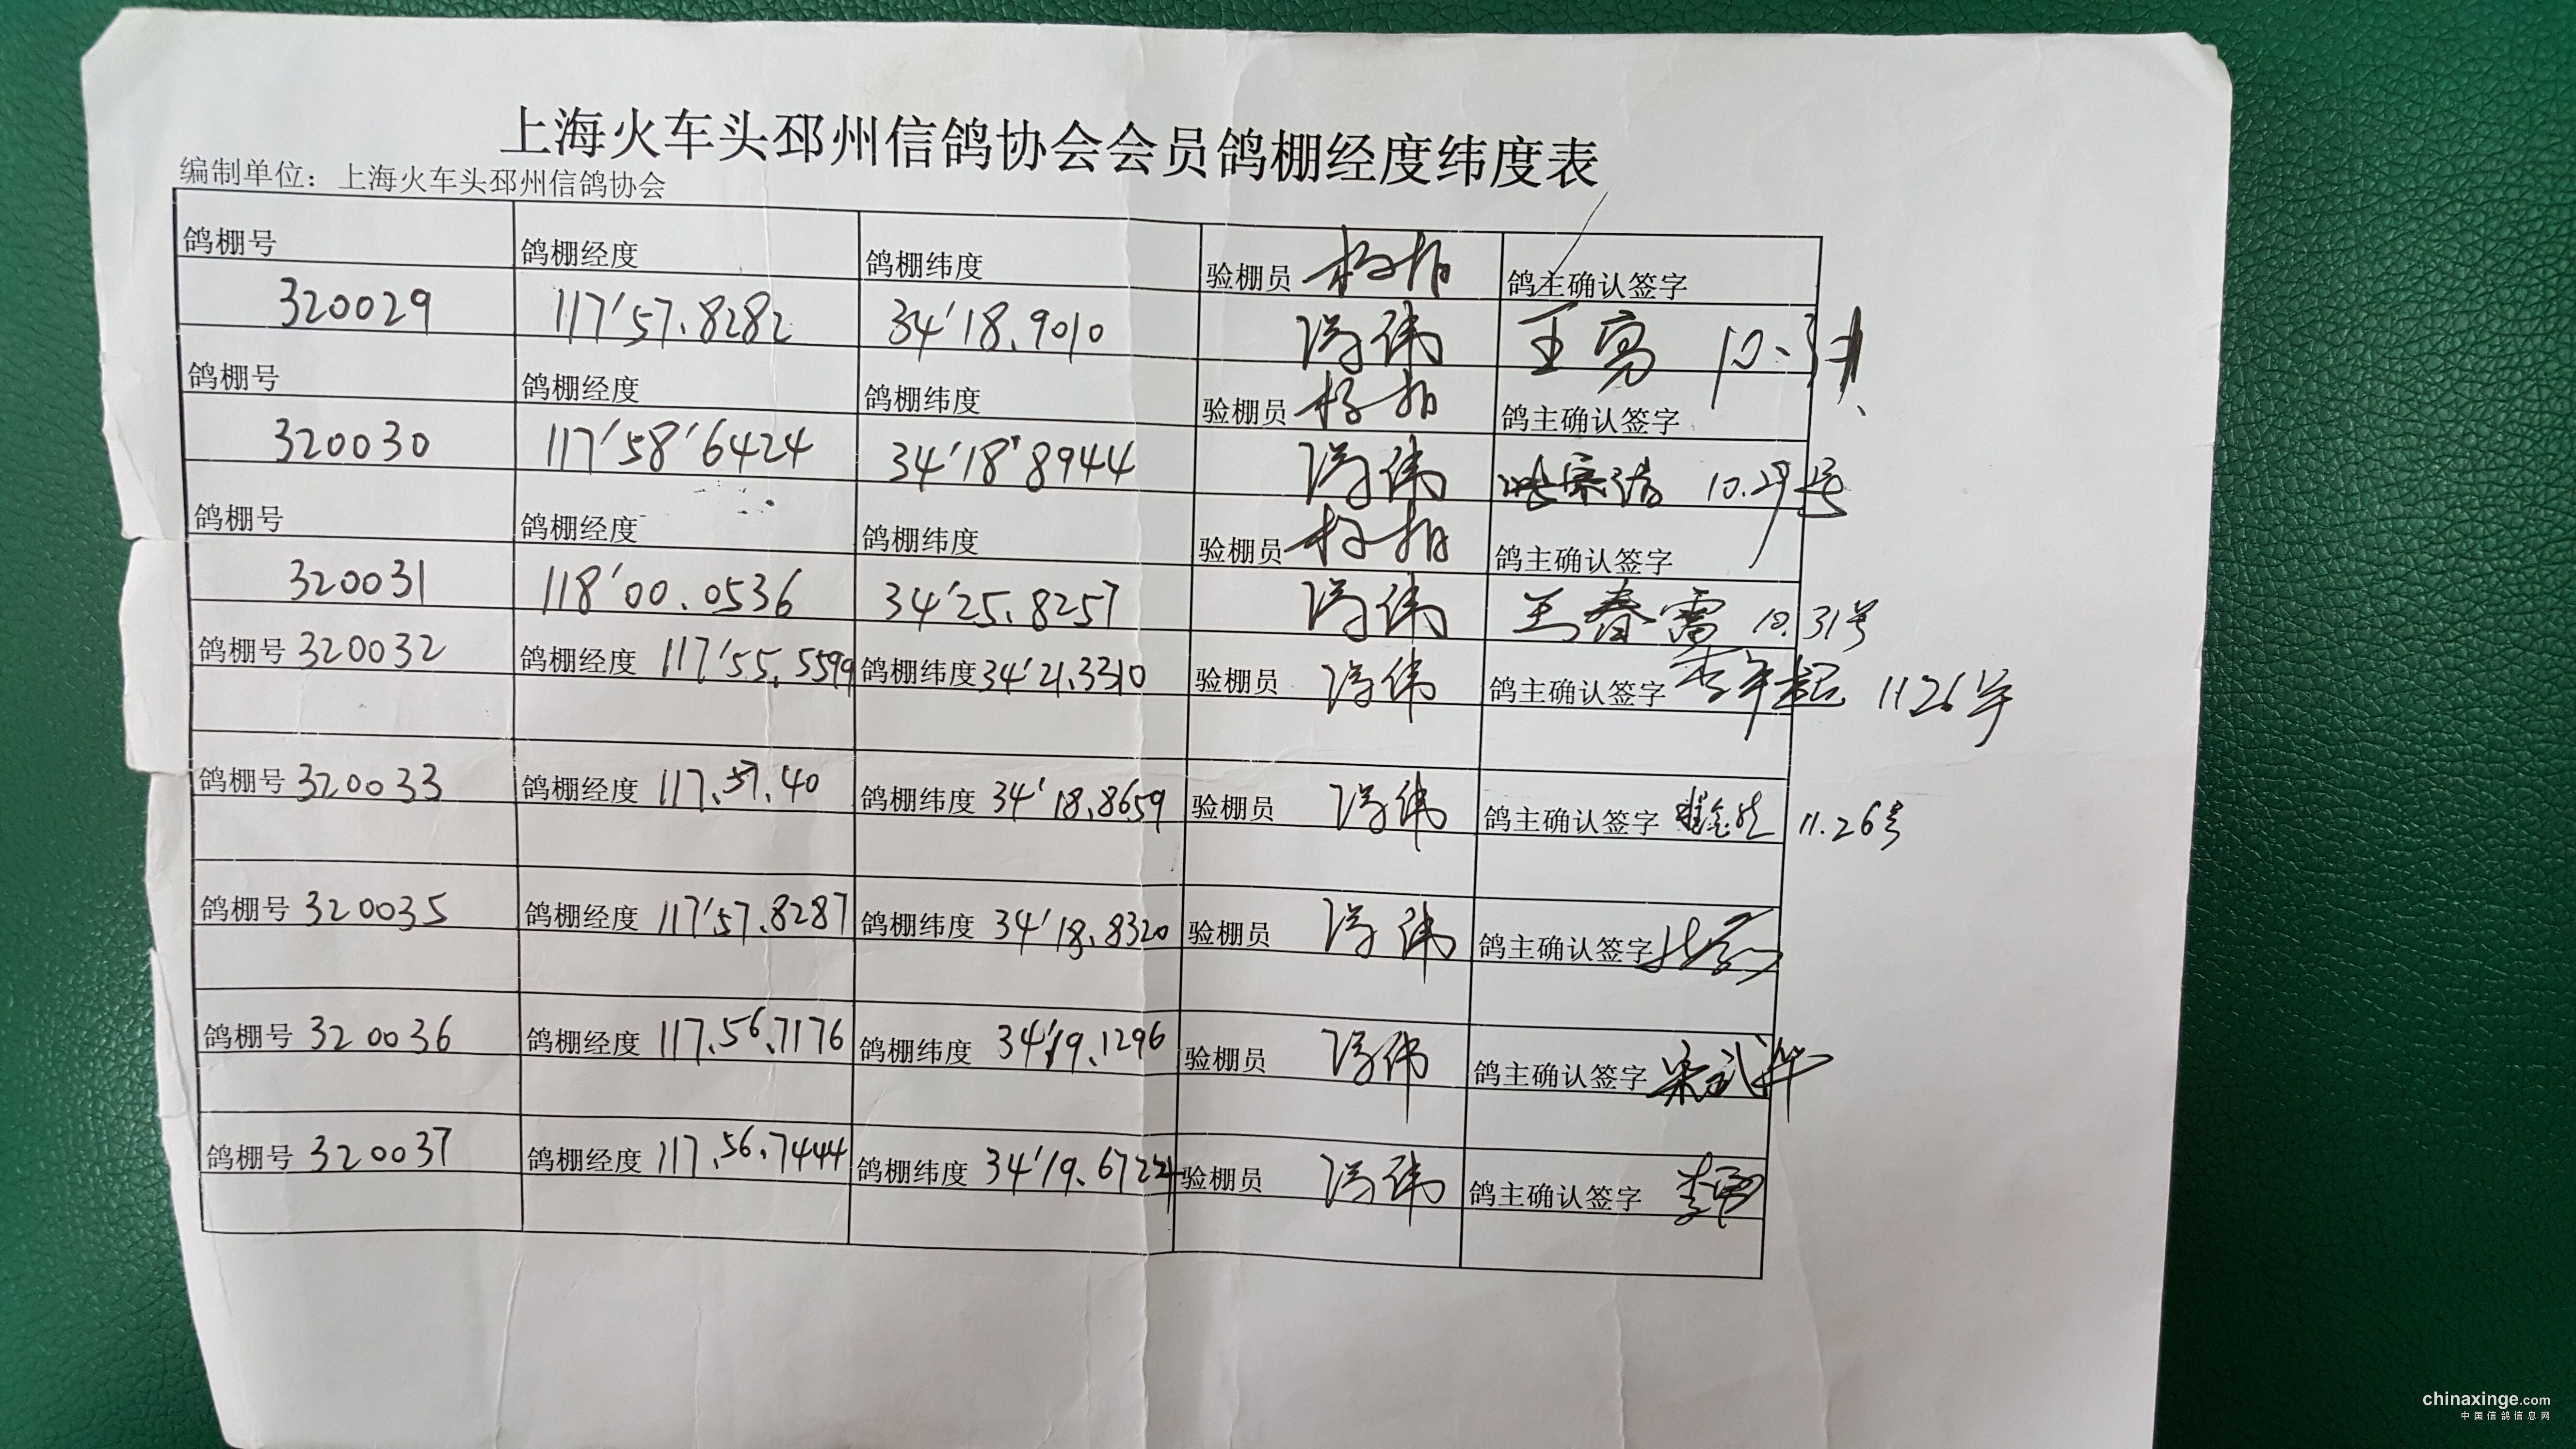 上海火车头邳州信鸽协会会员鸽棚经度纬度表
编制单位：上海火车头邳州信鸽协会
鸽棚号 鸽棚经度 鸽棚纬度 验棚员 鸽主确认签字
320029 117'57.8282 34'18.9010 冯伟 王亮 10.
鸽棚号 鸽棚经度 鸽棚纬度 验棚员 鸽主确认签字
320030 117'58'6424 34'18'8944 冯伟 10.29号
鸽棚号 鸽棚经度 鸽棚纬度 验棚员 鸽主确认签字
320031 118'00.0536 34'25.8257 冯伟 王春雷 10.31号
鸽棚号 320032 鸽棚经度 117'55.5599 鸽棚纬度 34'21.3310 验棚员 冯伟 鸽主确认签字 1126号
鸽棚号 320033 鸽棚经度 117.57.40 鸽棚纬度 34'18.8659 验棚员 冯伟 鸽主确认签字 11.26号
鸽棚号 320035 鸽棚经度 117'57.8287 鸽棚纬度 34'18.8320 验棚员 冯伟 鸽主确认签字
鸽棚号 320036 鸽棚经度 117.56.7176 鸽棚纬度 34'19.1296 验棚员 冯伟 鸽主确认签字 宋武华
鸽棚号 320037 鸽棚经度 117.56.7444 鸽棚纬度 34'19.6724 验棚员 冯伟 鸽主确认签字
chinaxinge.com
中国信鸽信息网